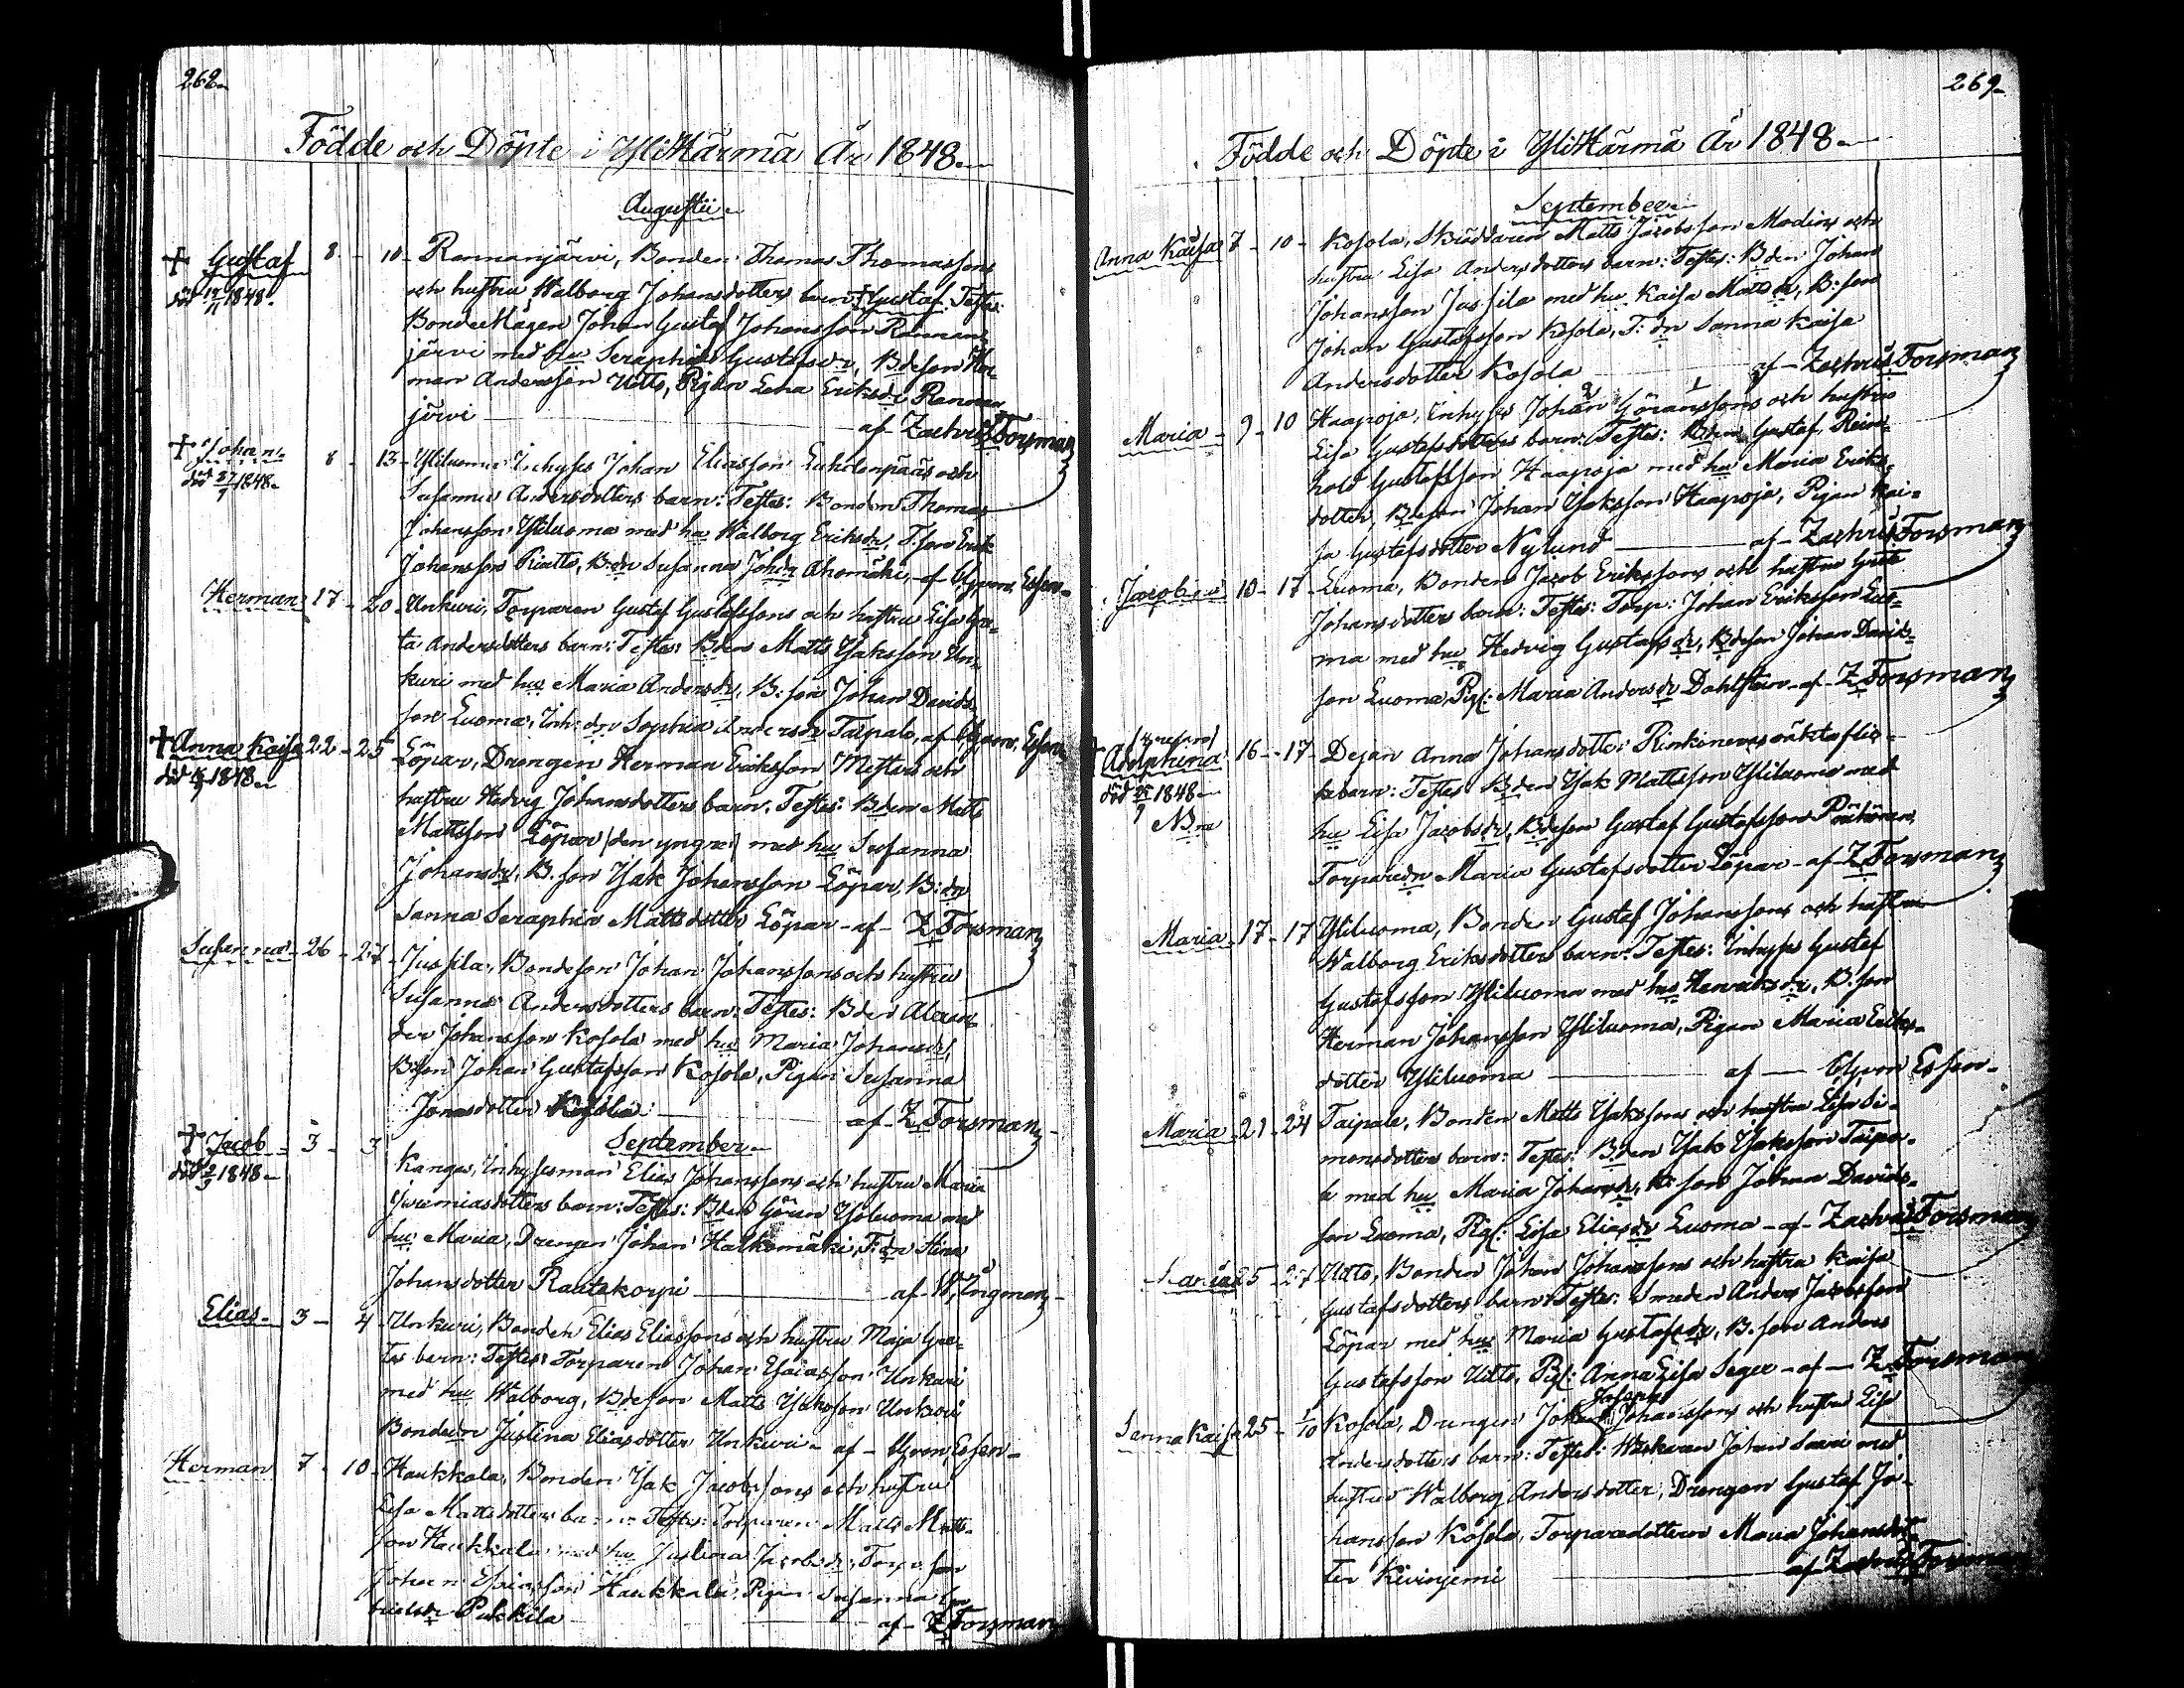 268.
Födde och Döpte i YliHärmä År 1848.
Augustii
† Gustaf 8 - 10 - Rannanjärvi, Bonden Thomas Thomassons
död 1848. och hustru Walborg Johansdotters barn † Gustaf. Testes:
BondeMågen Johan Gustaf Johansson Rannan-
järvi med hu Seraphia Gustafsdr, Bdeson Her-
man Andersson Utto, Pigan Lena Eriksdr Rannan
järvi af Zachris Forsman
† Johan 8 - 13 - Yliluoma Inhyses Johan Eliasson och
död 27/9 1848. Susanna Andersdotters barn: Testes: Bonden Thomas
Johansson Yliluoma med hu Walborg Eriksdr, T. son Erik
Johansson, B:dr Susanna Johdr Ahomäki, - af von Essen
Herman 17 - 20 - Unkuri, Torparen Gustaf Gustafssons och hustru Lisa Gre-
ta Andersdotters barn: Testes: Bden Matts Isaksson Un-
kuri med hu Maria Andersdr, B: son Johan Davids-
son Luoma, Inh: dr Sophia Andersdr Taipale, af von Essen
† Anna Kaisa 22 - 25 Löpar, Drengen Herman Eriksson Mesters och
död 1848. hustru Hedvig Johansdotters barn. Testes: Bden Matts
Mattsson Löpar (den yngre) med hu Susanna
Johansdr, B. son Isak Johansson Löpar, B:dr
Sanna Seraphia Mattsdotter Löpar - af - Z Forsman
Susanna - 26 - 27 - Jussila, Bondeson Johan Johanssons och hustru
Susanna Andersdotters barn: Testes: Bden Alexan-
der Johansson Kosola med hu Maria Johansdr,
B:son Johan Gustafsson Kosola, Pigan Susanna
Jonasdotter Kosola af - Z Forsman
September
† Jacob - 3 - 3 Kangas, Inhysesman Elias Johanssons och hustru Maria
död 1848 - Jeremiasdotters barn: Testes: Bden Göran Yliluoma med
hu Maria, Drengen Johan Halkomäki, T:dr Stina
Johansdotter Rautakorpi af W. Ingman
Elias - 3 - 4 - Unkuri, Bonden Elias Eliassons och hustru Maja Gre-
tas barn: Testes: Torparen Johan Esaiasson Unkuri
med hu Walborg, Bdeson Matts Isaksson Unkuri
Bondedr Justina Eliasdotter Unkuri - af - von Essen -
Herman 7 - 10 - Haukkala, Bonden Isak Jacobssons och hustru
Lisa Mattsdotters barn: Testes: Torparen Matts Matts-
son Haukkala med hu Justina Jacobsdr, Torp. son
Johan Esaiasson Haukkala, Pigan Susanna Ga-
brielsdr Pukkila af - Z Forsman
269.
Födde och Döpte i YliHärmä År 1848.
September
Anna Kaisa 7 - 10 - Kosola, Skräddaren Matts Jacobsson Modins och
hustru Lisa Andersdotters barn: Testes: Bden Johan
Johansson Jussila med hu Kaisa Mattsdr, B: son
Johan Gustafsson Kosola, T: dr Sanna Kaisa
Andersdotter Kosola af - Zachris Forsman
Maria - 9 - 10 Haapoja, Inhyses Johan Göranssons och hustru
Lisa Gustafsdotters barn: Testes: Bden Gustaf Rein-
hold Gustafsson Haapoja med hu Maria Eriks-
dotter, B:son Johan Isaksson Haapoja, Pigan Kai-
sa Gustafsdotter Nylund af - Zachris Forsman
Jacob 10 - 17 - Luoma, Bonden Jacob Erikssons och hustru Greta
Johansdotters barn: Testes: Torp: Johan Eriksson Luo-
ma med hu Hedvig Gustafsdr, Bdeson Johan Davids-
son Luoma, Pig: Maria Andersdr Dahlsten - af - Z Forsman
Adolphina 16 - 17 - Dejan Anna Johansdotter Rinkinens oäkta flic-
död 1848 - kebarn: Testes Bden Isak Mattsson Yliluoma med
N.B. hu Lisa Jacobsdr, Bdeson Gustaf Gustafsson
Torparedr Maria Gustafsdotter Löpar - af - Z Forsman
Maria - 17 - 17 Yliluoma, Bonden Gustaf Johanssons och hustru
Walborg Eriksdotters barn: Testes: Inhyses Gustaf
Gustafsson Yliluoma med hu Henriksdr, B. son
Herman Johansson Yliluoma, Pigan Maria Eriks-
dotter Yliluoma af von Essen -
Maria - 21 - 24 Taipale, Bonden Matts Isakssons och hustru Lisa Si-
monsdotters barn: Testes: Bden Isak Isaksson Taipa-
le med hu Maria Johansdr, B: son Johan Davids-
son Luoma, Pig: Lisa Eliasdr Luoma - af - Zachris Forsman
Maria 25 - 27 Utto, Bonden Johan Johanssons och hustru Kaisa
Gustafsdotters barn: Testes: Smeden Anders Jacobsson
Löpar med hu Maria Gustafsdr, B. son Anders
Gustafsson Utto, Pig: Anna Lisa Seger - af - Z Forsman
Sanna Kaisa 25 - 1/10 Kosola, Drengen Johanssons och hustru Lisa
Andersdotters barn: Testes: Johan Saari med
hustru Walborg Andersdotter, Drengen Gustaf Jo-
hansson Kosola, Torparedottern Maria Johansdot-
ter Kiviniemi af Zachris Forsman